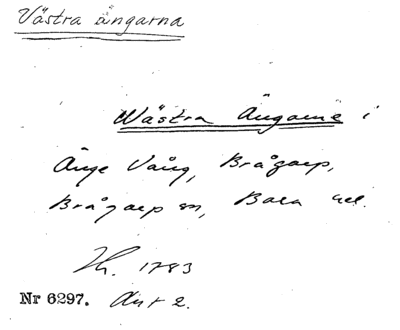 Västra ängarna
Wästra Ängarne i
Änge Vång, Brågarp,
Brågarp sn, Bara hd.
Lh. 1783
Nr 6297. Akt 2.